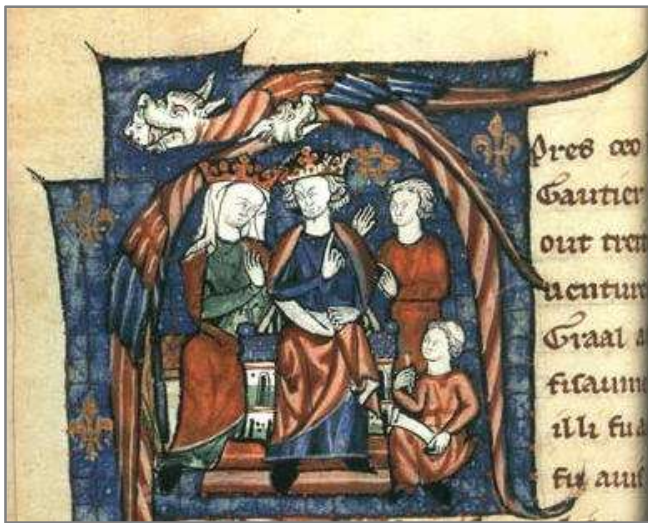 Pres ceo
Gautier
out tret
uenture
Graal a
fisaume
illi fu a
fu auis